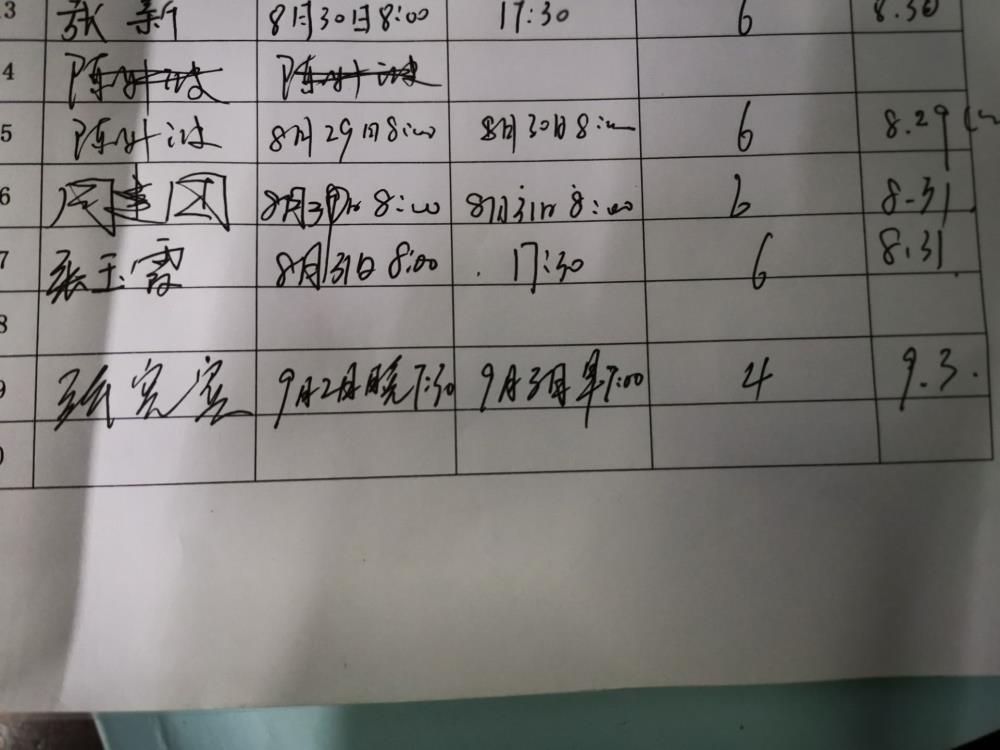 3 张新 8月30日8:00 17:30 6 8.30
4
5 陈叶波 8月29日8:00 8月30日8:00 6 8.29
6 周建国 8:00 8月31日 8:00 6 8.31
7 张玉霞 8月31日 8:00 17:30 6 8.31
8
9 9月2日晚7:30 9月3日早7:00 4 9.3.
0